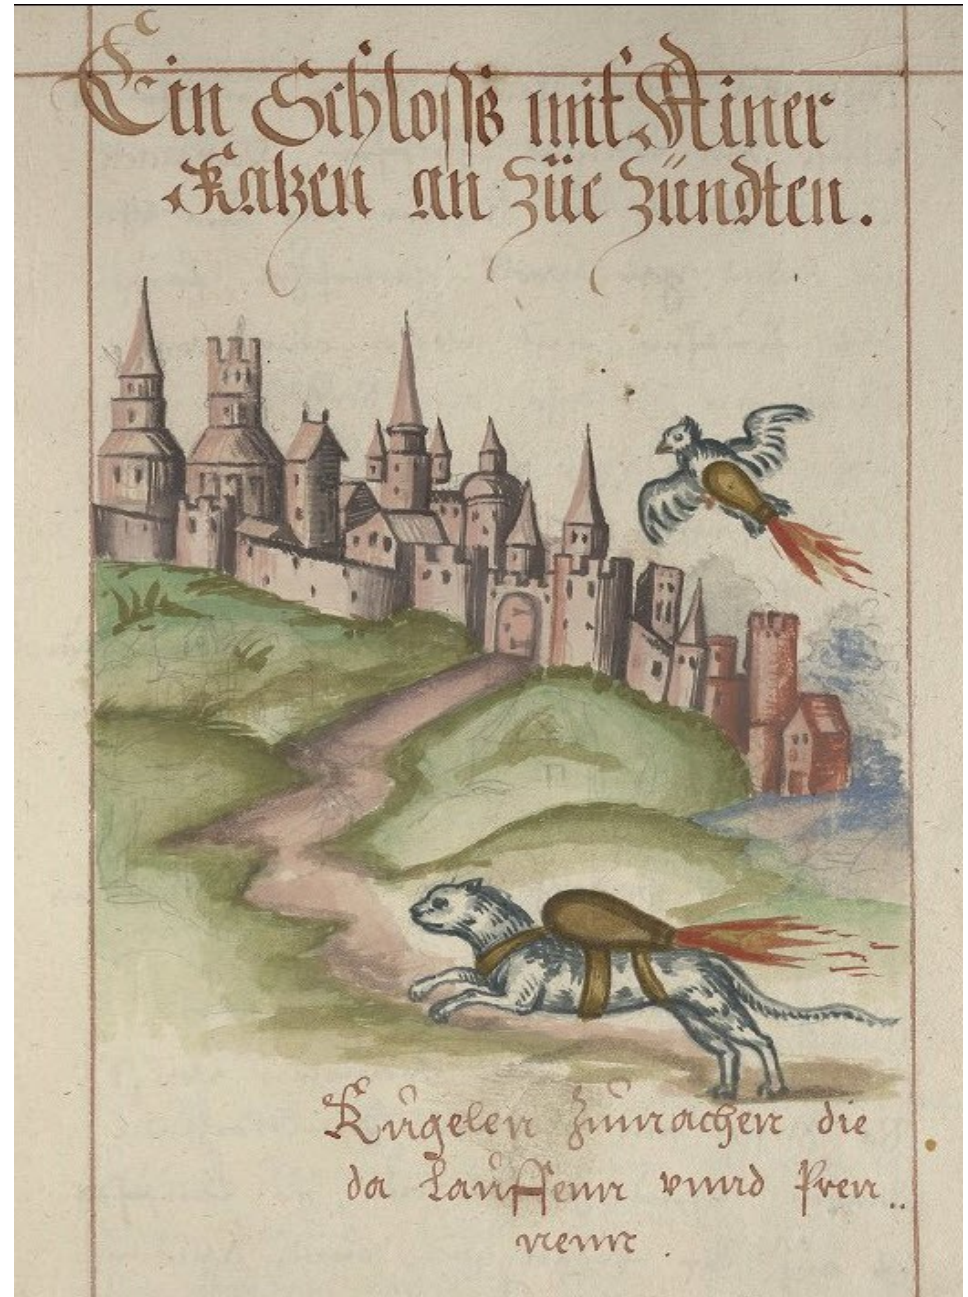 Ein Schlosß mit Ainer
Katzen an züe zündten.
Kugelen zumachen die
da Lauffenn vnnd Pren„
nenn.